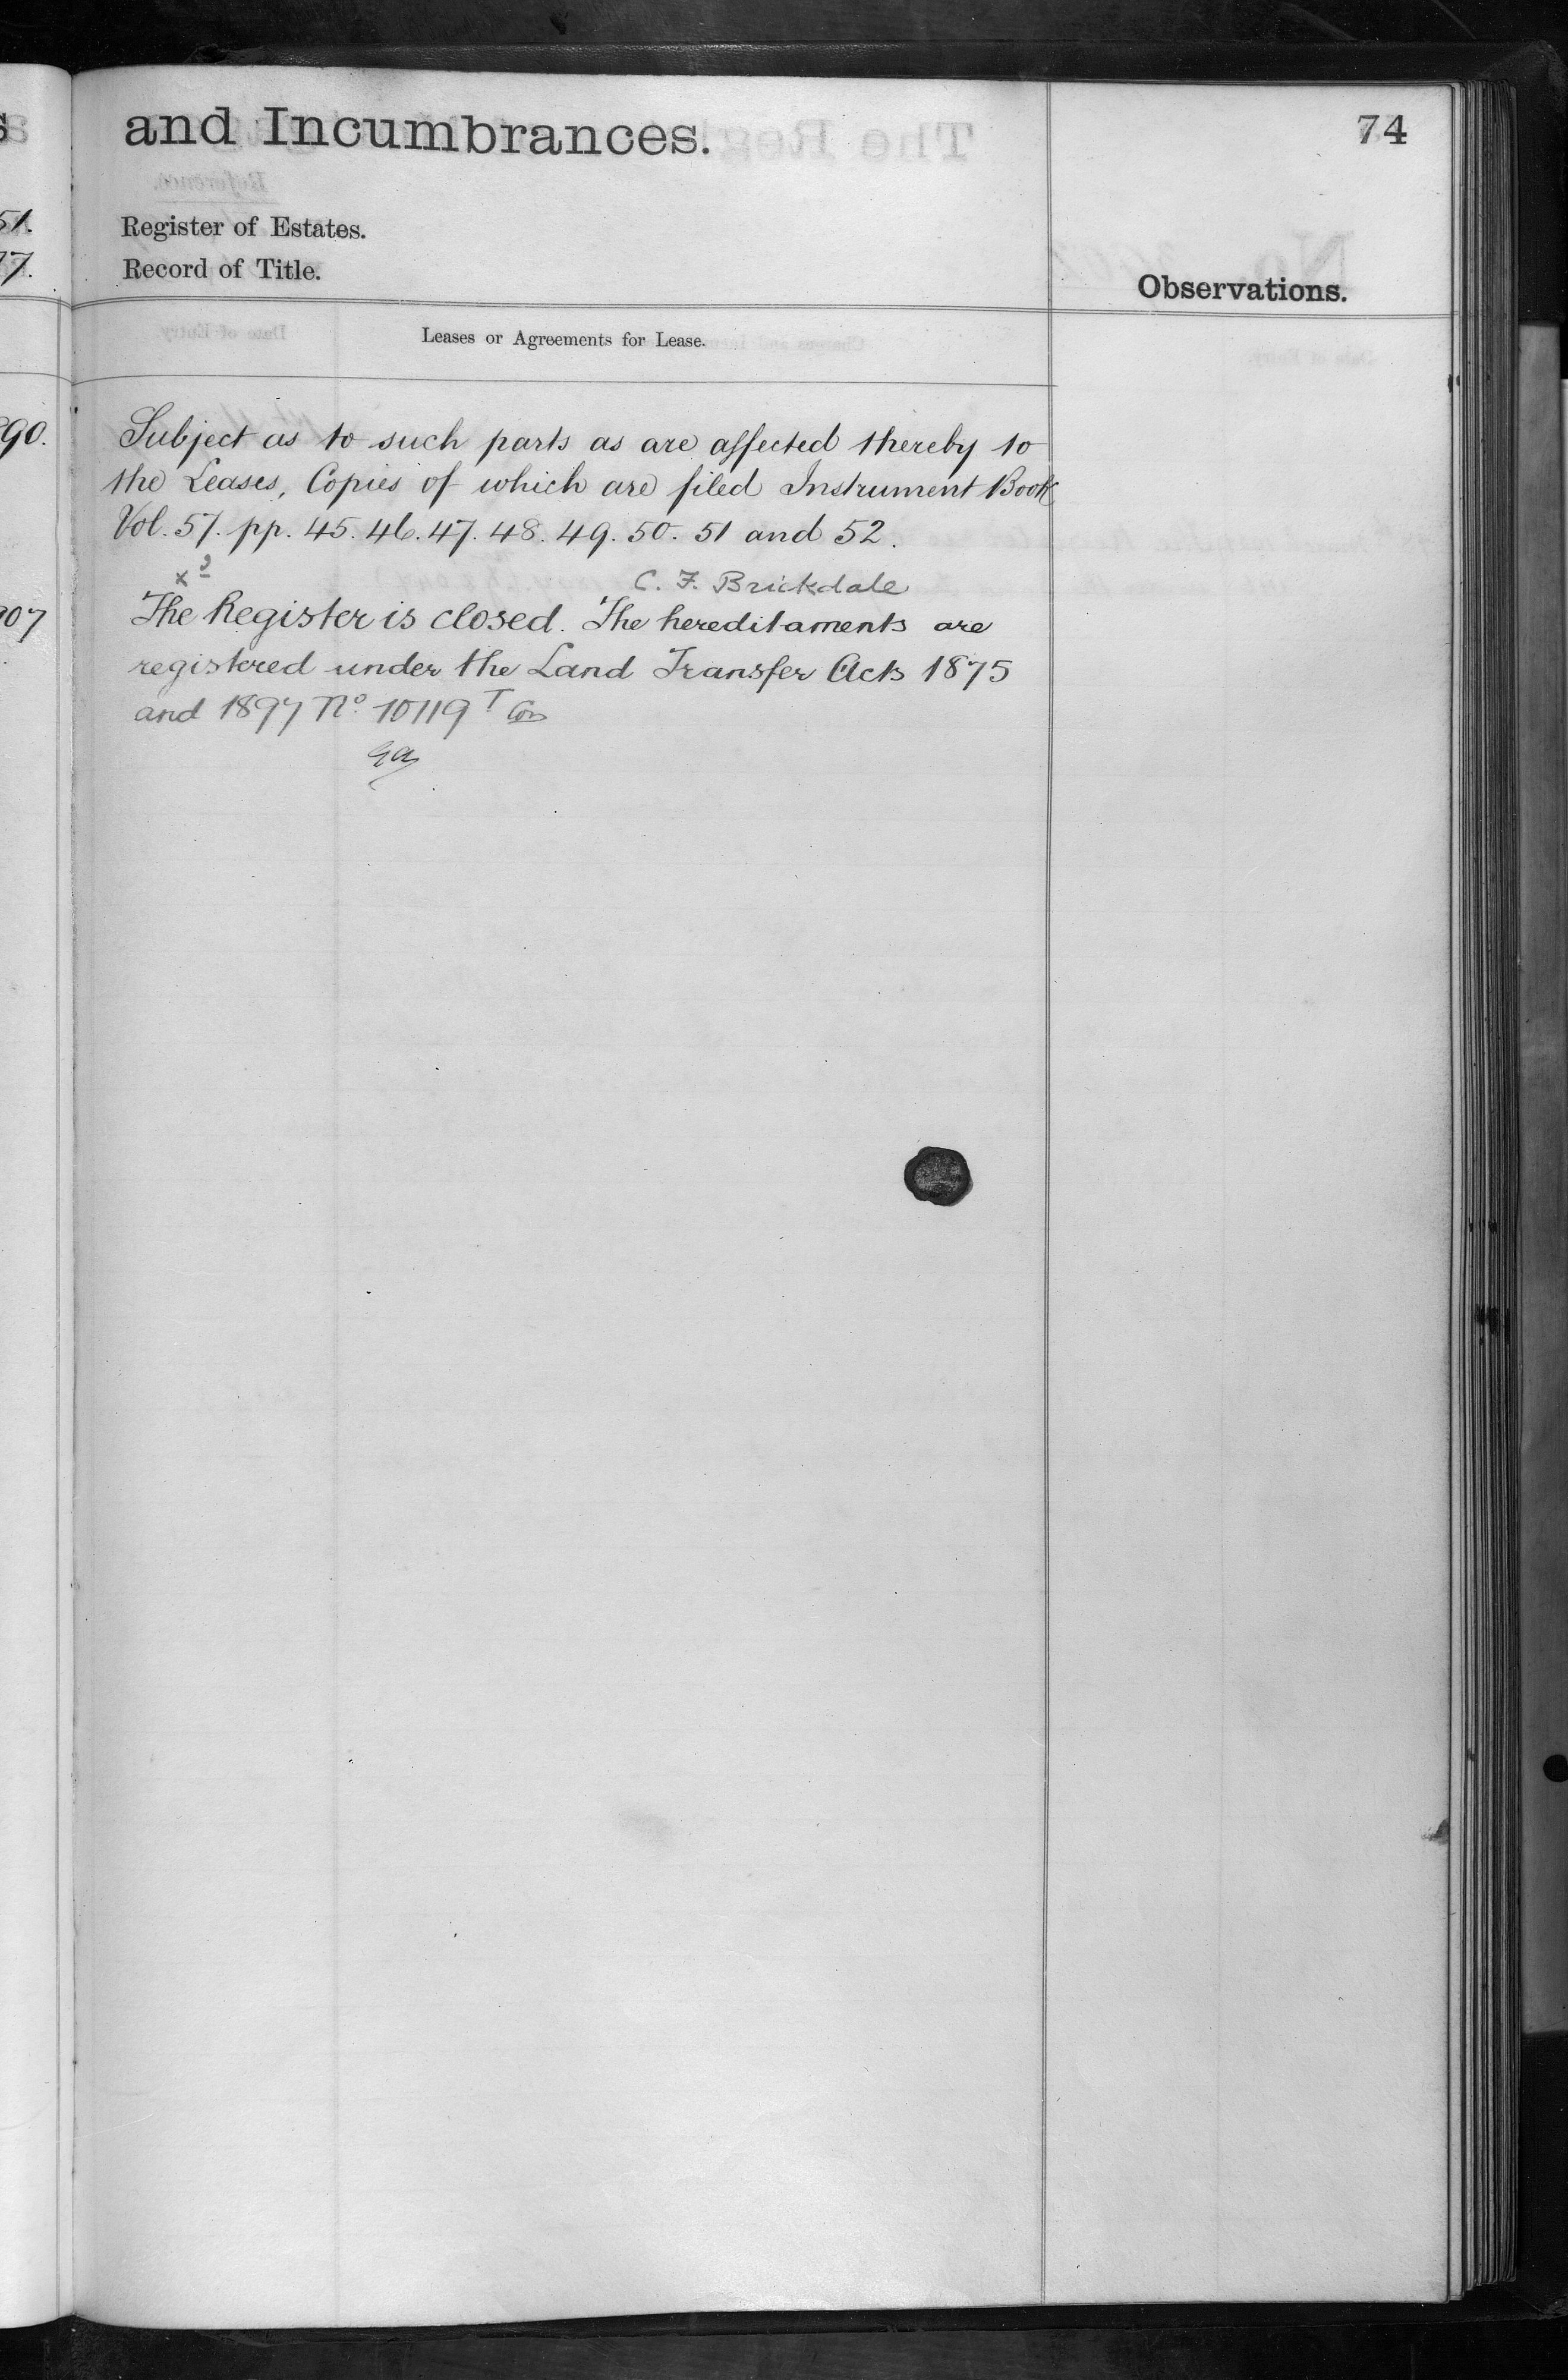 and Incumbrances.
74
Register of Estates.
Record of Title.
Observations.
Leases or Agreements for Lease.
Subject as to such parts as are affected thereby to
the Leases, Copies of which are filed Instrument Book
Vol. 57. pp. 45. 46. 47. 48. 49. 50. 51 and 52.
C. F. Brickdale
The Register is closed. The hereditaments are
registered under the Land Transfer Acts 1875
and 1897 No. 10119
51.
77.
90.
907